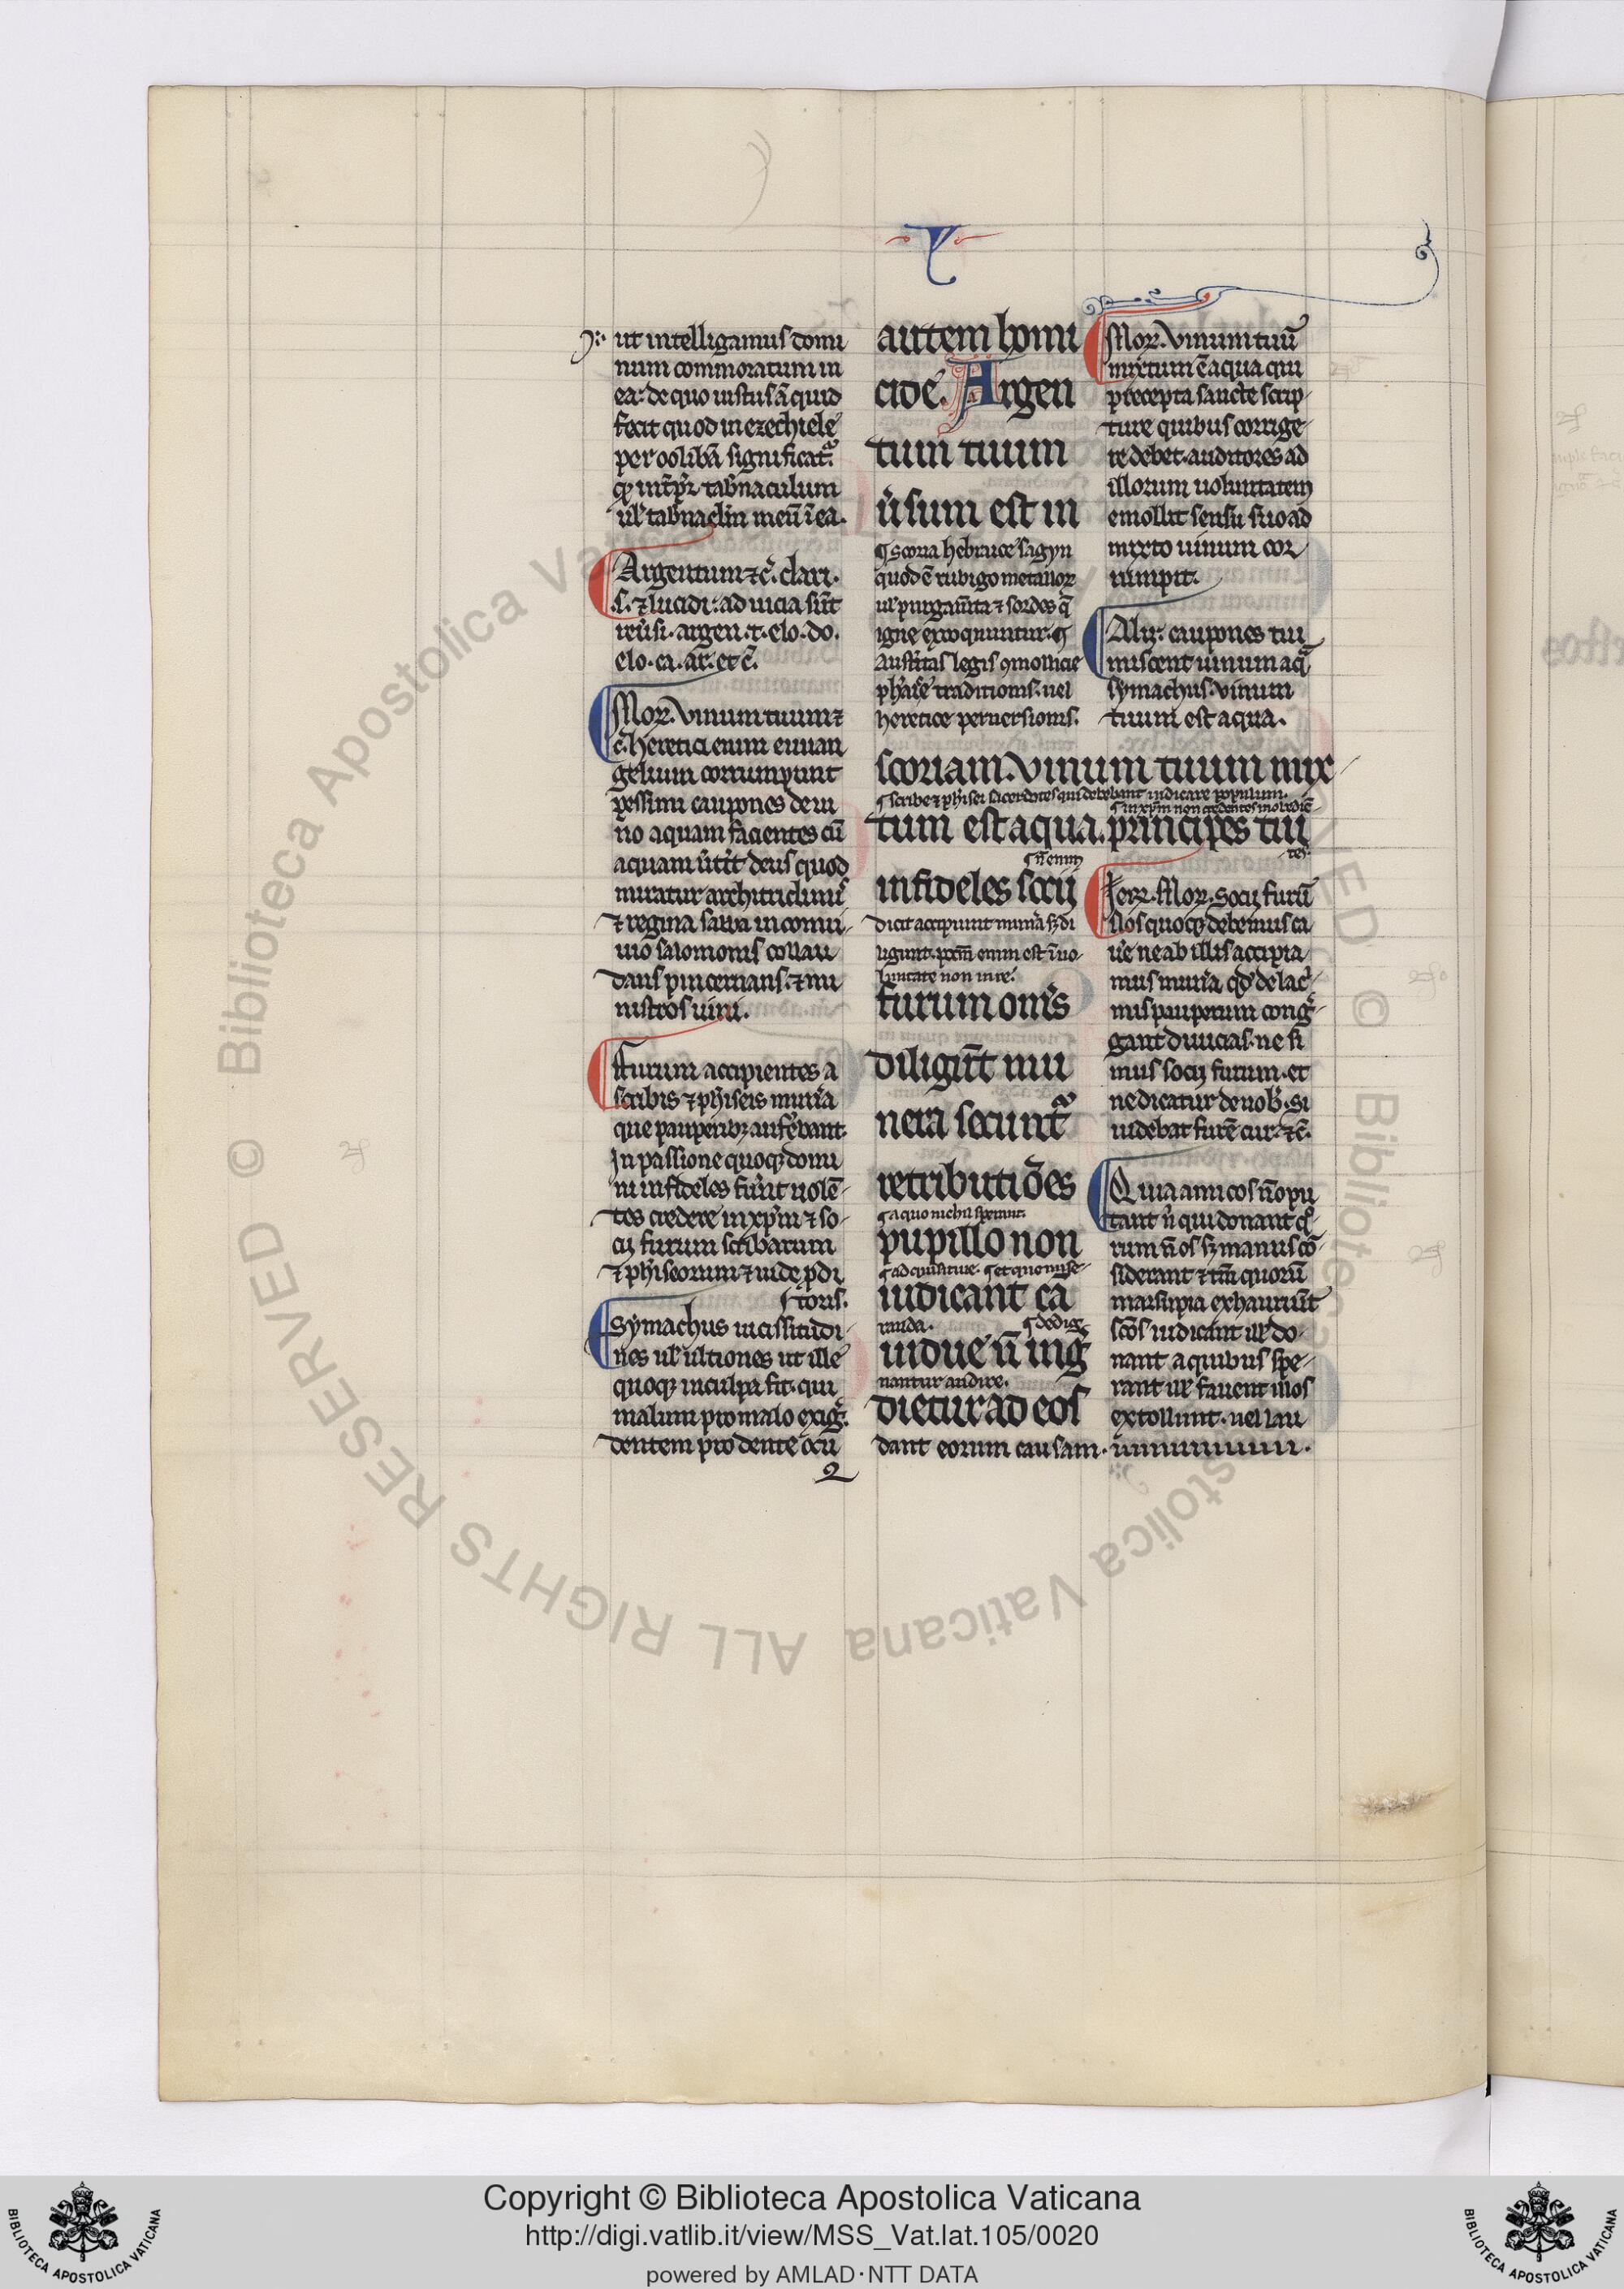 Y
ut intelligamus domi
num commoratum in
ea: de quo iustus ã quid
fecit quod in ezechiele
per oolibã significat̃.
tab̃naculum
ul̃ tab̃naclm̃ meũ ĩ ea.
Argentum ⁊ c̃. clari.
s. ⁊ lucidi: ad uicia sũt
reũsi. argen. t. elo. do.
elo. ca. ar̃. et c̃.
Moꝝ. Vinum tuum ⁊
c̃. heretici enim euuan
gelium corrumpunt
pessimi caupones de ui
no aquam facientes cũ
aquam ũtit deus quod
miratur architriclinus
⁊ regina saba in conui
uio salomonis collau
dans pincernans. ⁊ mi
nistros uini.
Furum accipientes a
scribis ⁊ ph̃iseis mun̾a
que pauperibꝫ aufẽbant.
In passione quoqꝫ domi
ni infideles fuer̃t nolẽ
tes credere in xp̃m ⁊ so
cij furum scribarum
⁊ ph̃iseorum ⁊ iude p̱di
toris.
Symachus uicissitudi
nes ul̃ ultiones ut ille
quoqꝫ in culpa sit. qui
malum pro malo exigit.
dentem pro dente ocu
autem homi
cide. Argen
tum tuum
ũsum est in
¶ scoria hebraice sagyn
quod ẽ rubigo metalloꝝ
ul̃ purgam̃ta ⁊ sordes q̃
igne excoquuntur. ¶
Austĩtas legis ꝯmollicie
ph̃aise traditionis. uel
heretice peruersionis.
scoriam. Vinum tuum mix
¶ scribe ⁊ ph̃isei sacerdotes qui debebant iudicare populum.
¶ in xp̃m non credentes inobediẽ
tum est aqua. principes tui
tes.
¶ ñ enim
infideles socij
Dicit accipiunt mun̾a sꝫ di
ligunt. peccm̃ enim est ĩ uo
luntate non in re.
furum om̃s
diligũt mu
nera secunt̃
retributiões
¶ a quo nichil sperant.
pupillo non
iudicant ca
randa. ¶ dedig
uidue ñ ing̃
nantur audire.
dietur ad eos
dant eorum causam.
Moꝝ. Vinum tuũ
mixtum ẽ aqua qui
precepta sancte scrip
ture quibus corrige
re debet. auditores ad
illorum uoluntatem
emollit sensu suo ad
mixto uinum cor
rumpit.
Alij: caupones tui
miscent uinum aq̃
symachus. vinum
tuum est aqua.
Jeꝝ. Moꝝ. Socij furũ
Nos quoqꝫ debemus ca
uẽ ne ab illis accipia
mus mun̾a qđ de lac̾i
mis pauperum cong̃
gant diuicias. ne si
mus socij furum. et
ne dicatur de nob̃. Si
uidebat furẽ cur. ⁊ c̃.
Quia amicos ñ opu
tant ñ qui donant
rum ñ os sꝫ manus cõ
siderant ⁊ tm̃ quorũ
marsupia exhauriũt
scõs iudicant ul̃ do
nant a quibus spe
rant ul̃ fauent illos
extollunt. uel lau
Copyright © Biblioteca Apostolica Vaticana
http://digi.vatlib.it/view/MSS_Vat.lat.105/0020
powered by AMLAD·NTT DATA
BIBLIOTECA APOSTOLICA VATICANA
BIBLIOTECA APOSTOLICA VATICANA
© Biblioteca Apostolica Vaticana ALL RIGHTS RESERVED